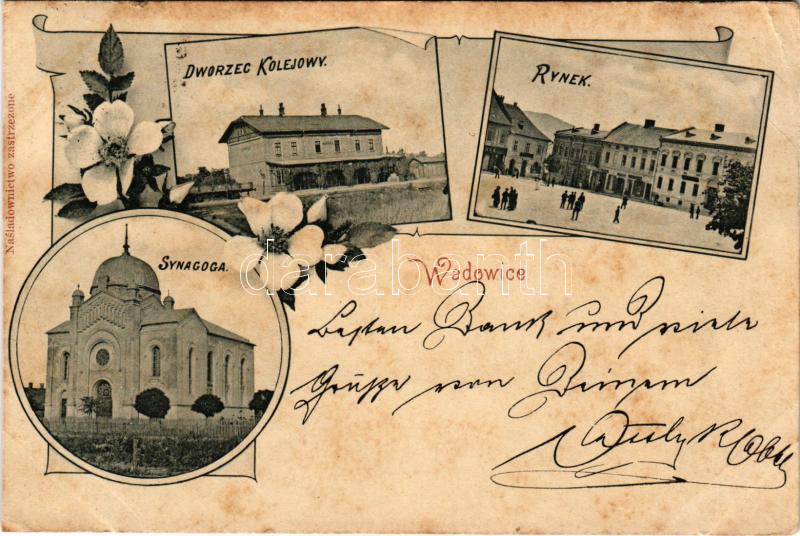 Dworzec Kolejowy.
Rynek.
Naśladownictwo zastrzeżone
Synagoga.
Wadowice
darabanth
Besten Dank und viele
Grüße von Deinem